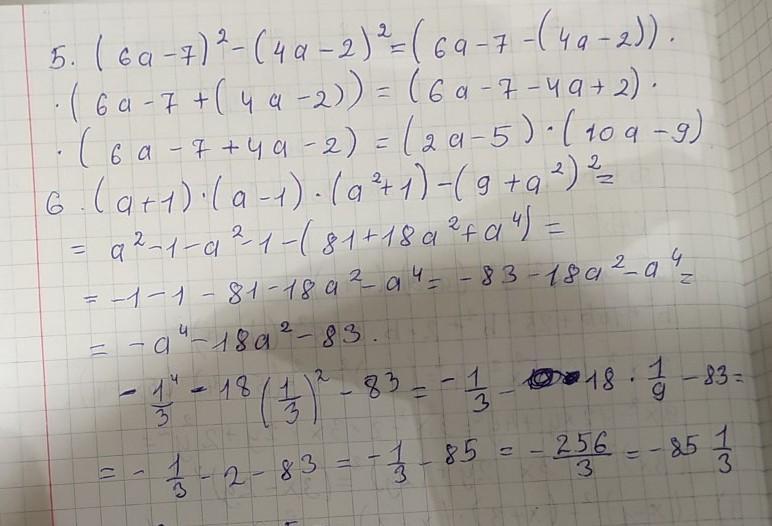 5. (6a-7)²-(4a-2)²=(6a-7-(4a-2))·
·(6a-7+(4a-2))=(6a-7-4a+2)·
·(6a-7+4a-2)=(2a-5)·(10a-9)
6.(a+1)·(a-1)·(a²+1)-(9+a²)²=
= a²-1-a²-1-(81+18a²+a⁴)=
= -1-1-81-18a²-a⁴= -83-18a²-a⁴=
= -a⁴-18a²-83.
-1/3⁴-18(1/3)²-83=-1/3-18·1/9-83=
= -1/3-2-83=-1/3-85=-256/3=-85 1/3